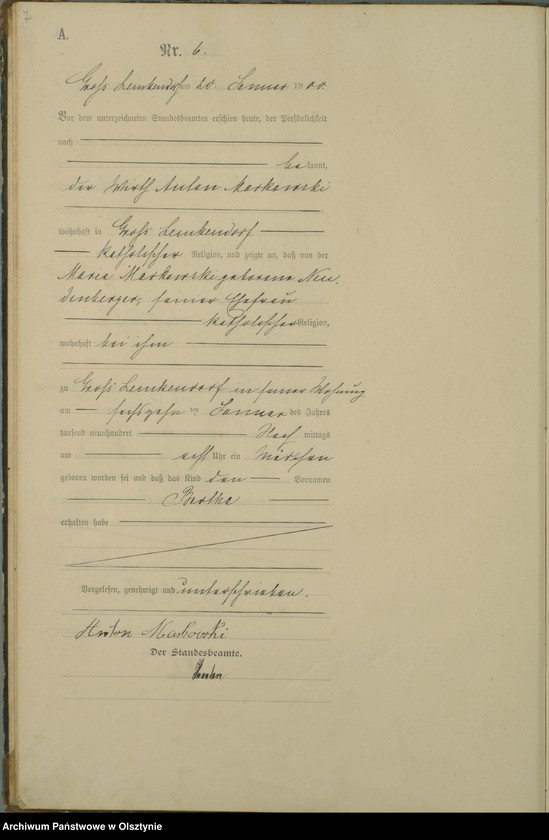 7
A.
Nr. 6.
Groß Lemkendorf am 20. Januar 1900.
Vor dem unterzeichneten Standesbeamten erschien heute, der Persönlichkeit
nach
bekannt,
der Wirth Anton Markowski
wohnhaft in Groß Lemkendorf
katholischer Religion, und zeigte an, daß von der
Maria Markowski geborene Neu
denberger, seiner Ehefrau
katholischer Religion,
wohnhaft bei ihm
zu Groß Lemkendorf in seiner Wohnung
am sechszehn ten Januar des Jahres
tausend neunhundert Nach mittags
um acht Uhr ein Mädchen
geboren worden sei und daß das Kind den Vornamen
Bertha
erhalten habe
Vorgelesen, genehmigt und unterschrieben.
Anton Markowski
Der Standesbeamte.
Archiwum Państwowe w Olsztynie